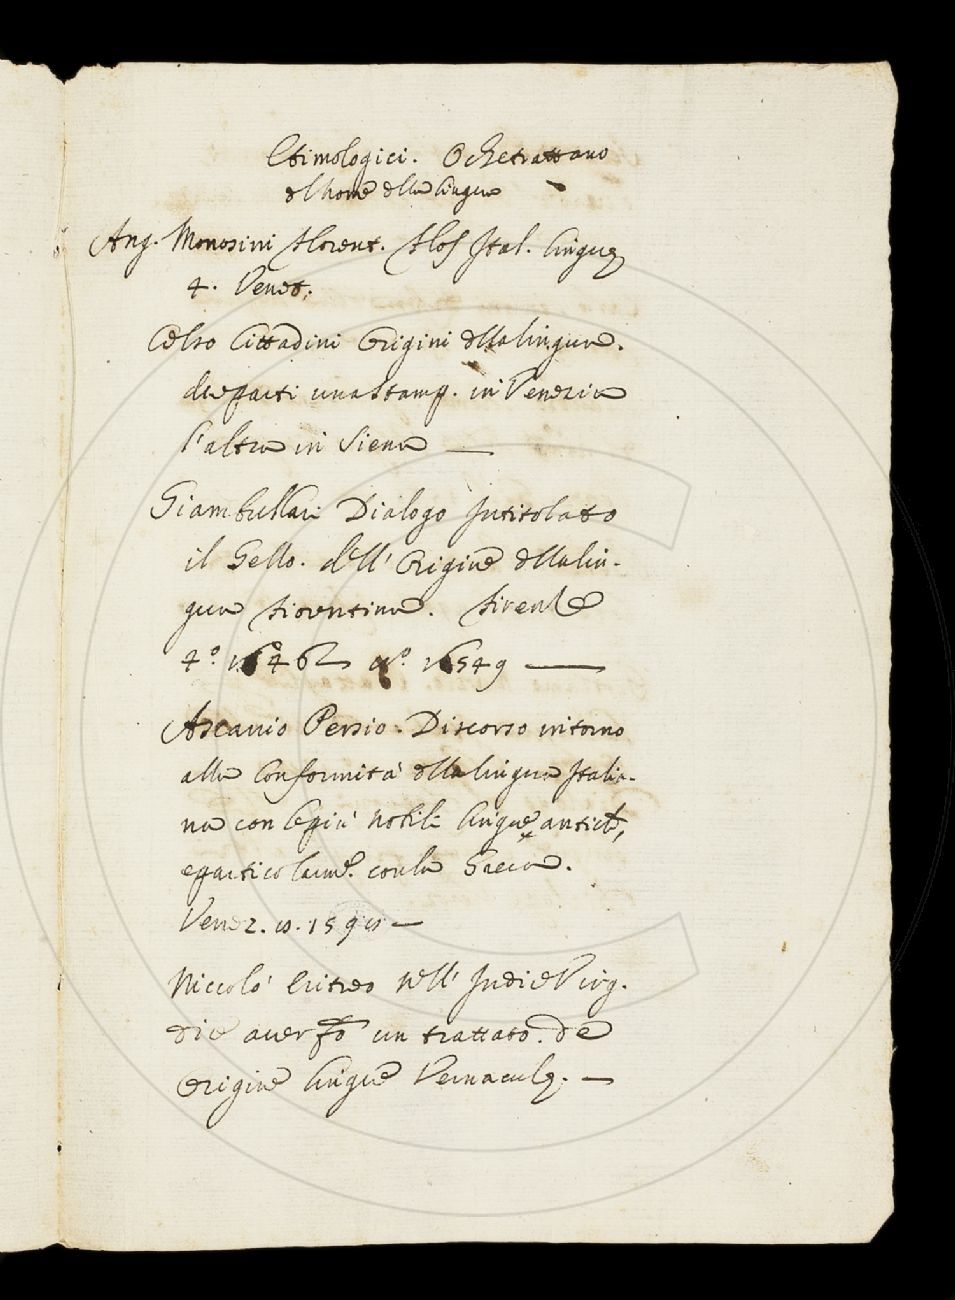 Etimologici. O che trattano
del nome della lingua
Ang. Monosini Florent. Flos Ital. linguę
4. Venet.
Celso Cittadini Origini della lingua.
due parti una stamp. in Venezia
l'altra in Siena
Giambullari Dialogo Intitolato
il Gello. dell' Origine della lin-
gua fiorentina. firenze
4º. 1546 1549
Ascanio Persio. Discorso intorno
alla Conformità della lingua Italia-
na con le più nobili lingue antiche,
e particolarmᵉ. con la Greca.
Venez.
Niccolò Eritreo nell' Indice Virg.
dice aver fᵗᵒ un trattato. de
Origine linguę Vernaculę.